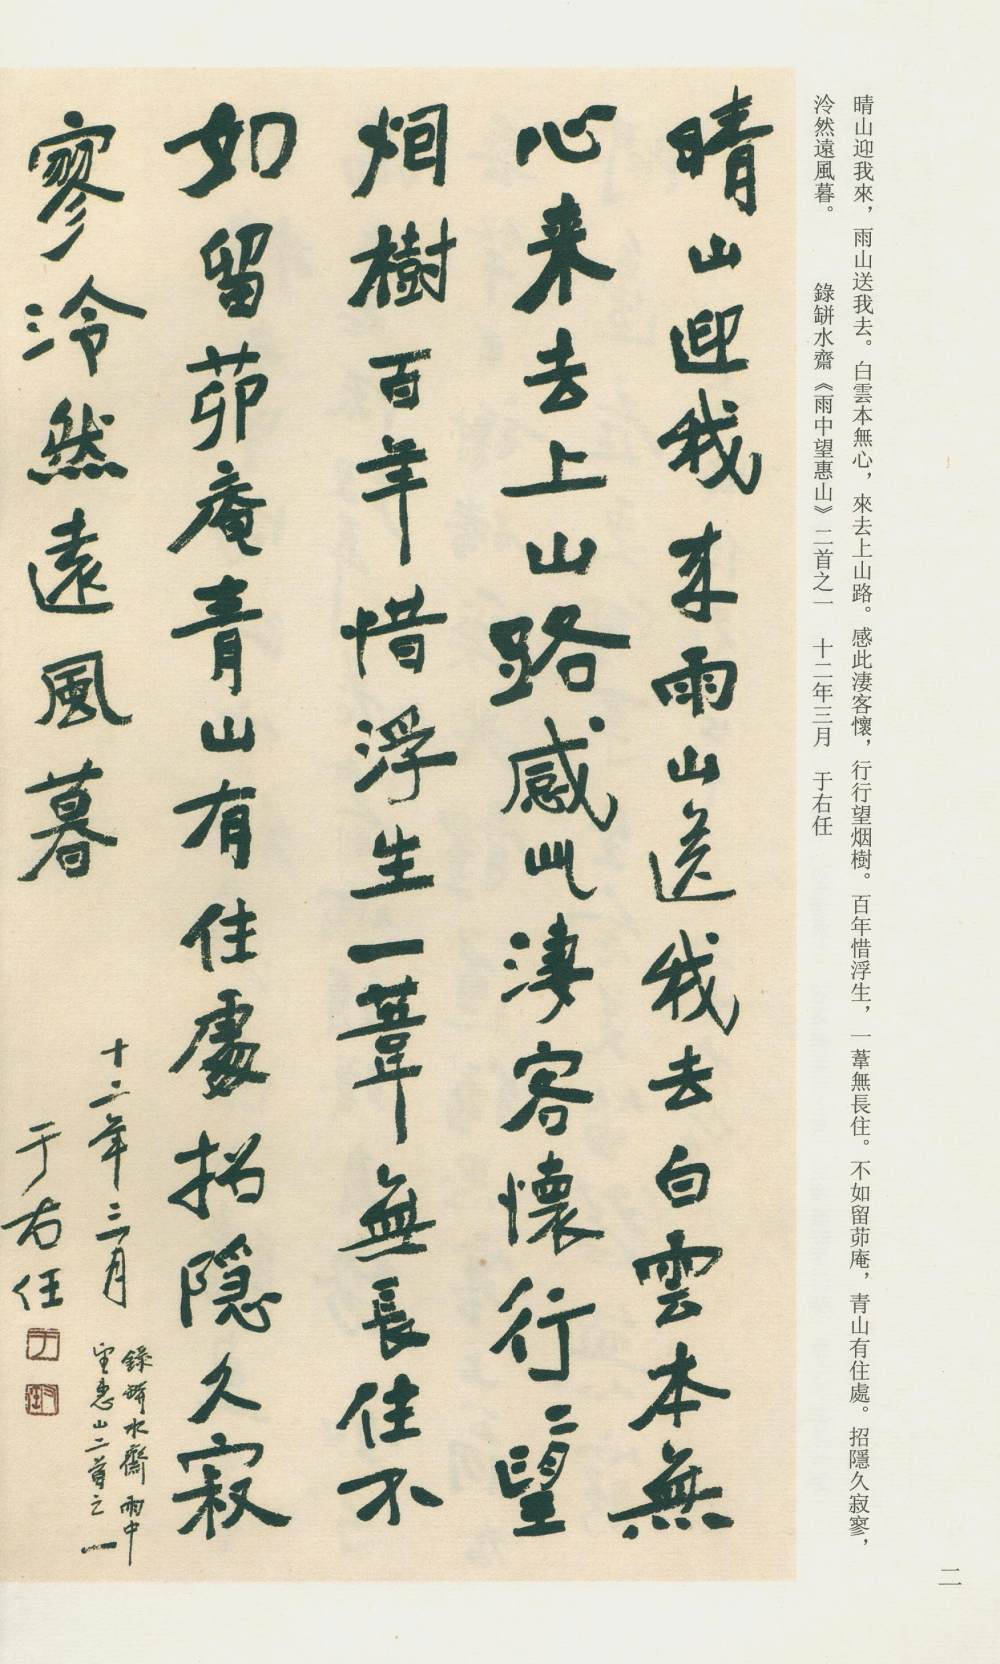 晴山迎我來，雨山送我去。白雲本無心，來去上山路。感此淒客懷，行行望烟樹。百年惜浮生，一葦無長住。不如留茆庵，青山有住處。招隱久寂寥，
泠然遠風暮。　　錄缾水齋《雨中望惠山》二首之一　十二年三月　于右任
晴山迎我来雨山送我去白雲本無
心来去上山路感此淒客懷行〻望
烟樹百年惜浮生一葦無長住不
如留茆庵青山有住處招隱久寂
寥泠然遠風暮
錄缾水齋雨中
望惠山二首之一
十二年三月
于右任
二